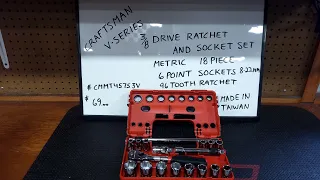 CRAFTSMAN
V-SERIES
3/8 DRIVE RATCHET
AND SOCKET SET
METRIC 18 PIECE
6 POINT SOCKETS 8-22mm
# CMMT45753V 96 TOOTH RATCHET
$ 69.00
MADE IN
TAIWAN